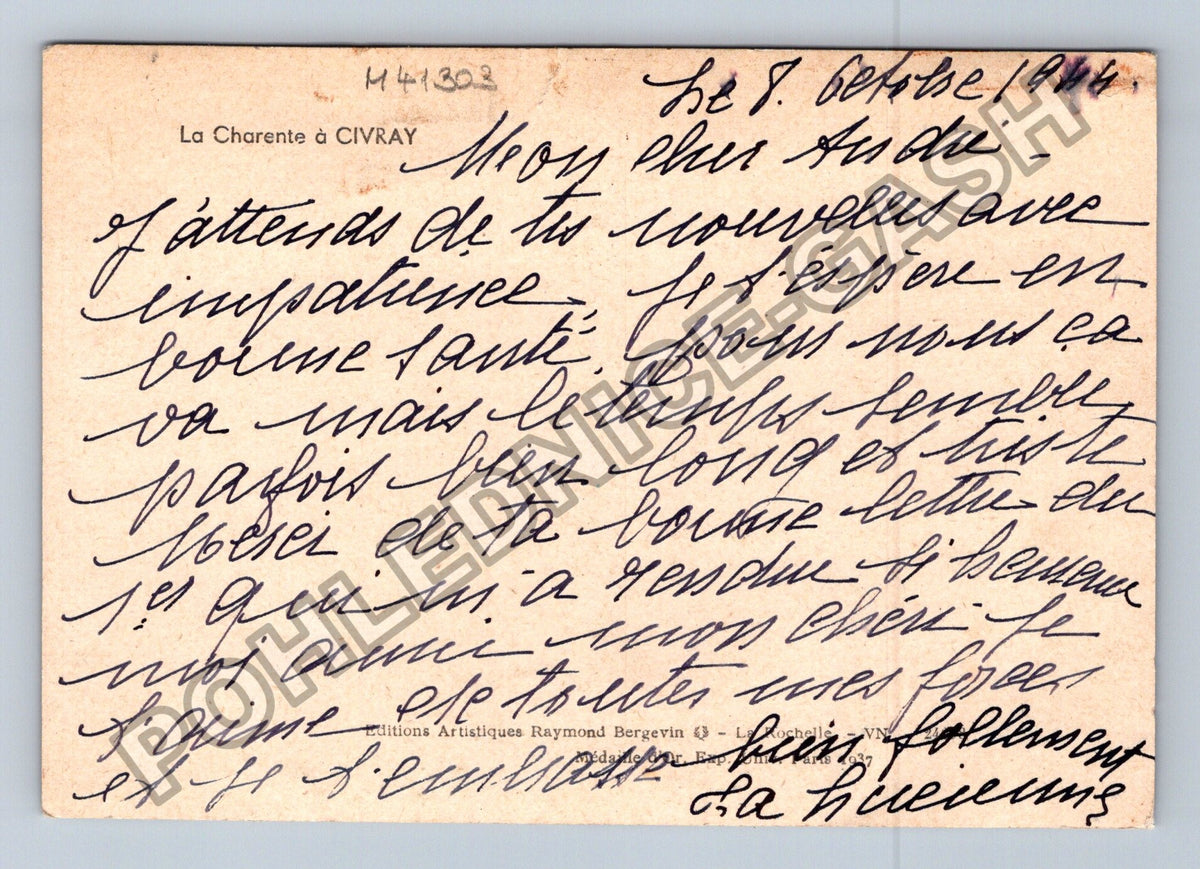 M41303
Le 8. Octobre 1944.
La Charente à CIVRAY
Mon cher André -
J'attends de tes nouvelles avec
impatience, je t'espère en
bonne santé, pour nous ça
va mais le temps semble
parfois bien long et triste
Merci de ta bonne lettre du
1er qui m'a rendue si heureuse
moi aussi mon chéri je
t'aime de toutes mes forces
Editions Artistiques Raymond Bergevin - La Rochelle. - VN
et je t'embrasse bien follement
Médaille d'Or. Exp. Univ. Paris 1937
Ta Lucienne
POHLEDNICE-GASH